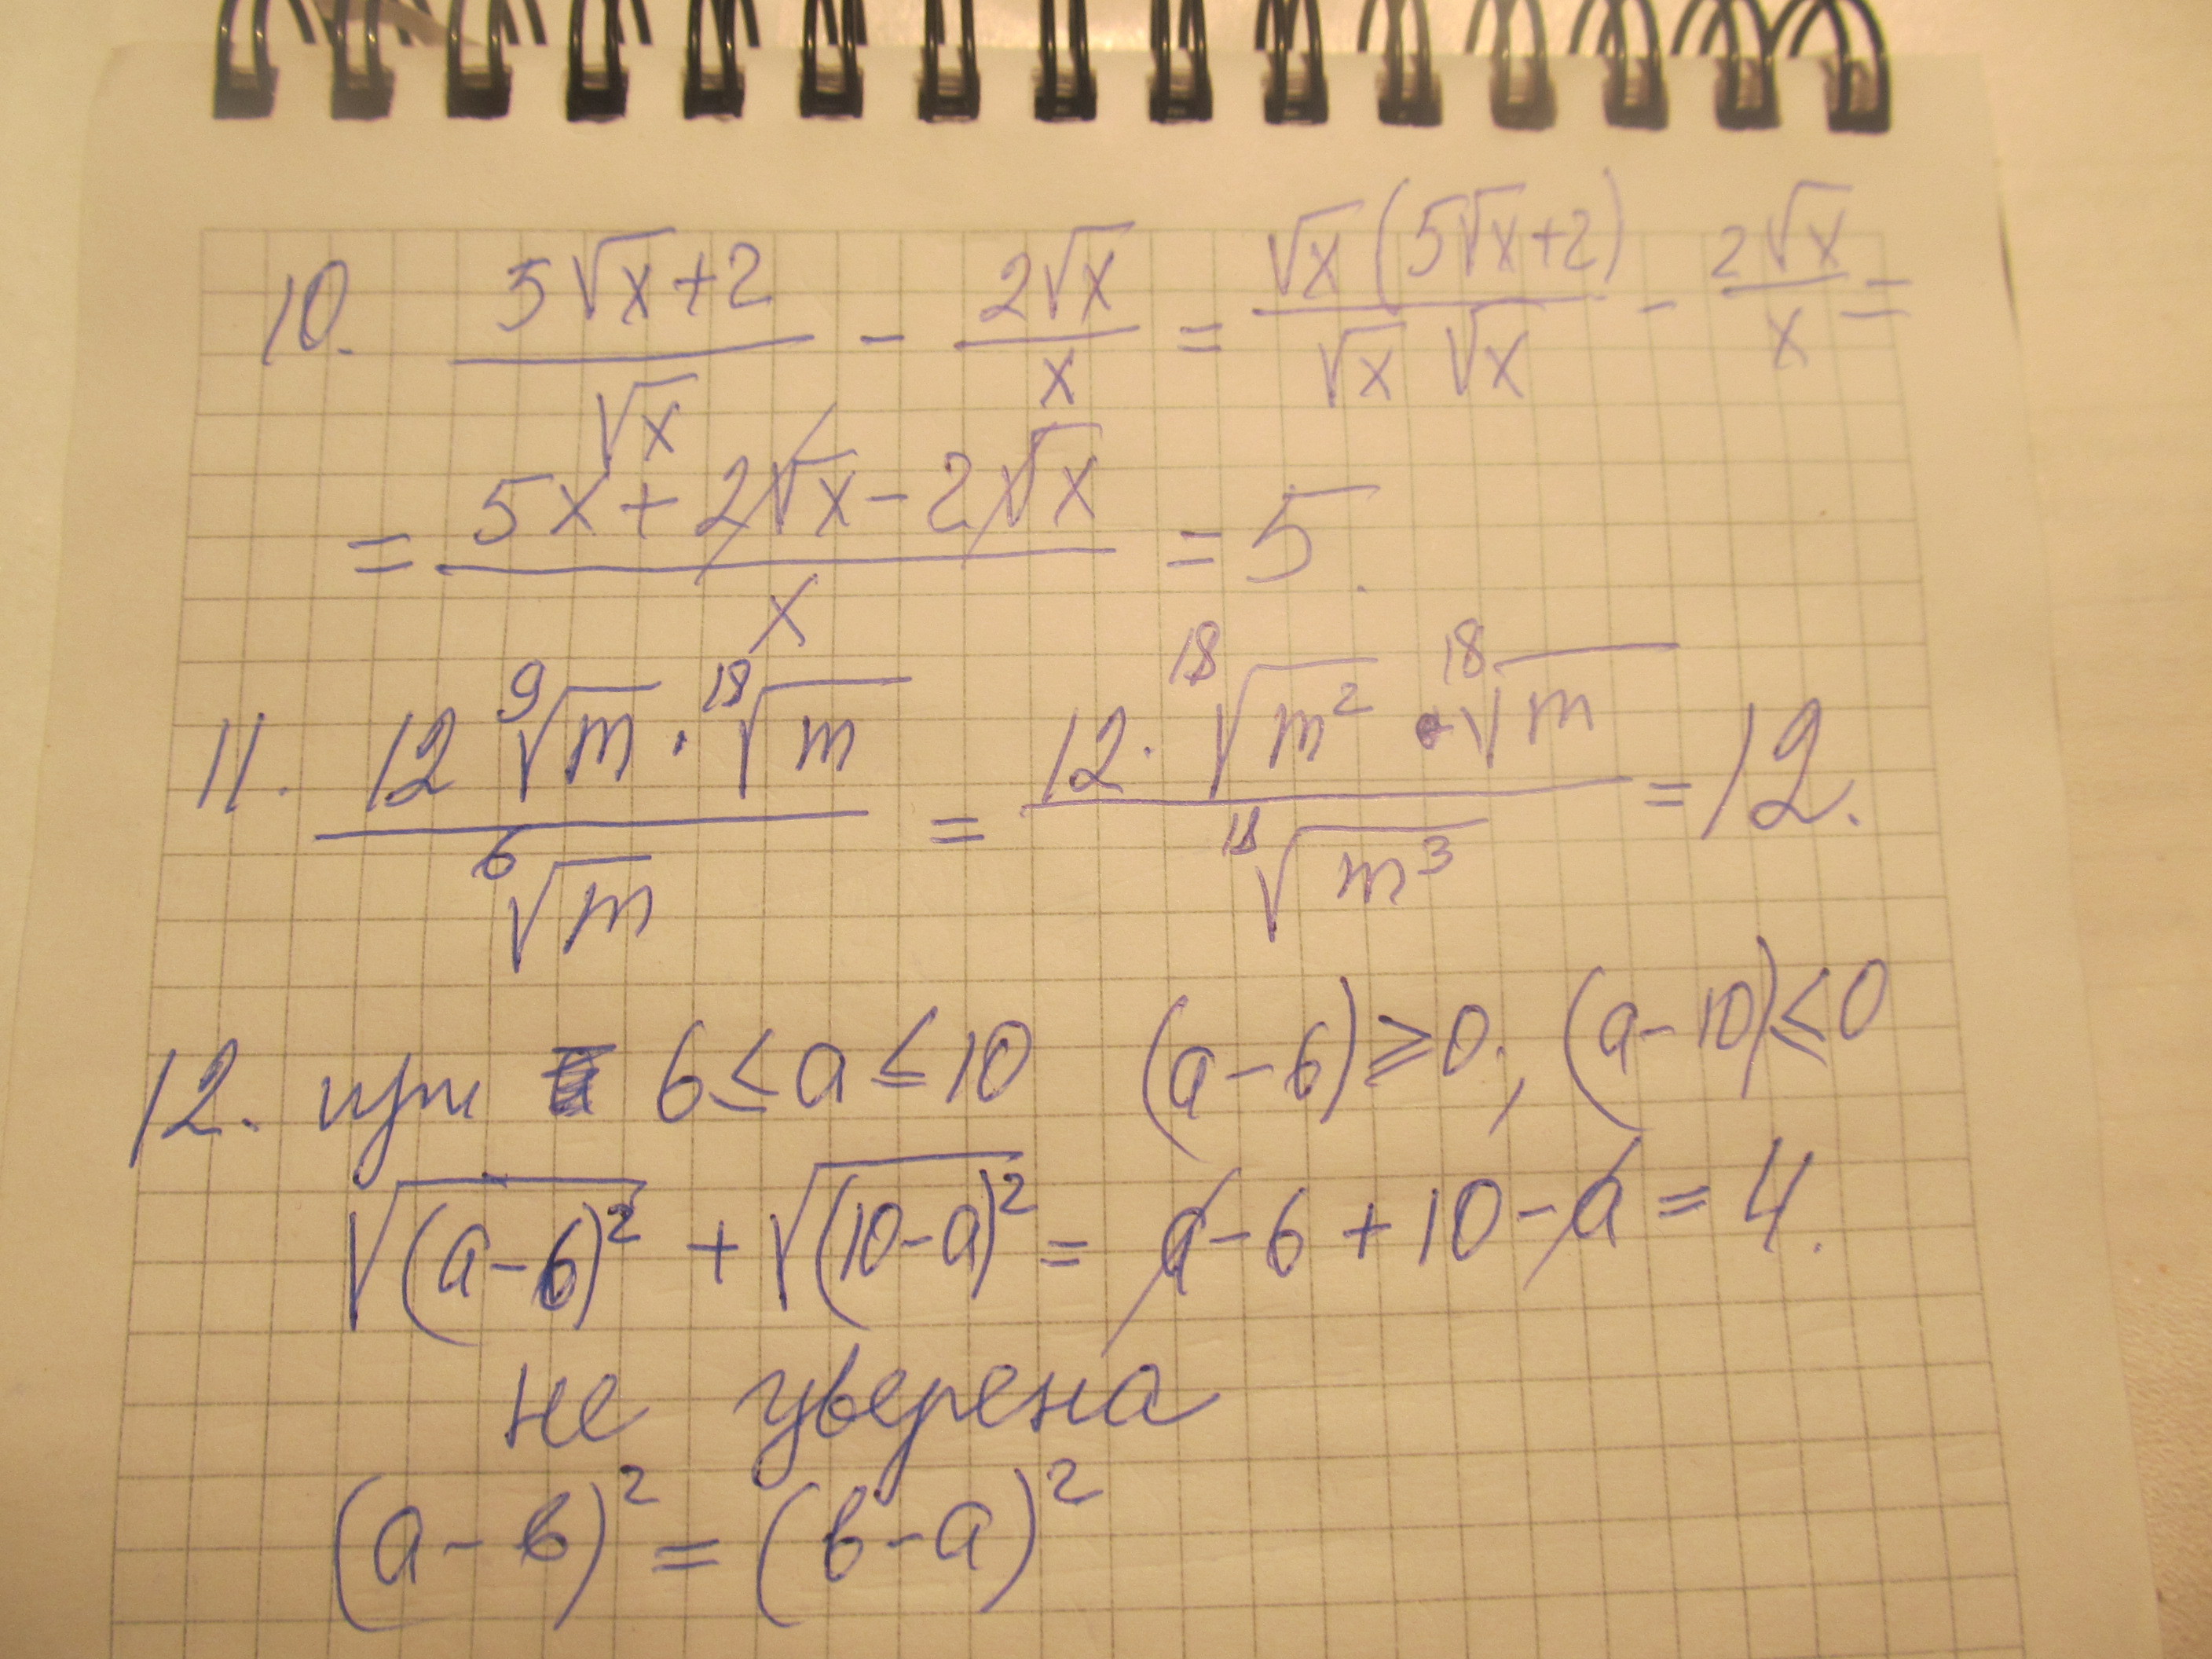 10. (5√x+2)/√x - 2√x/x = √x(5√x+2)/(√x √x) - 2√x/x =
= (5x+2√x-2√x)/x = 5.
11. (12 ⁹√m · ¹⁸√m)/⁶√m = (12 · ¹⁸√m² · ¹⁸√m)/¹⁸√m³ = 12.
12. при 6≤a≤10 (a-6)≥0; (a-10)≤0
√(a-6)² + √(10-a)² = a-6+10-a = 4.
не уверена
(a-в)² = (в-a)²